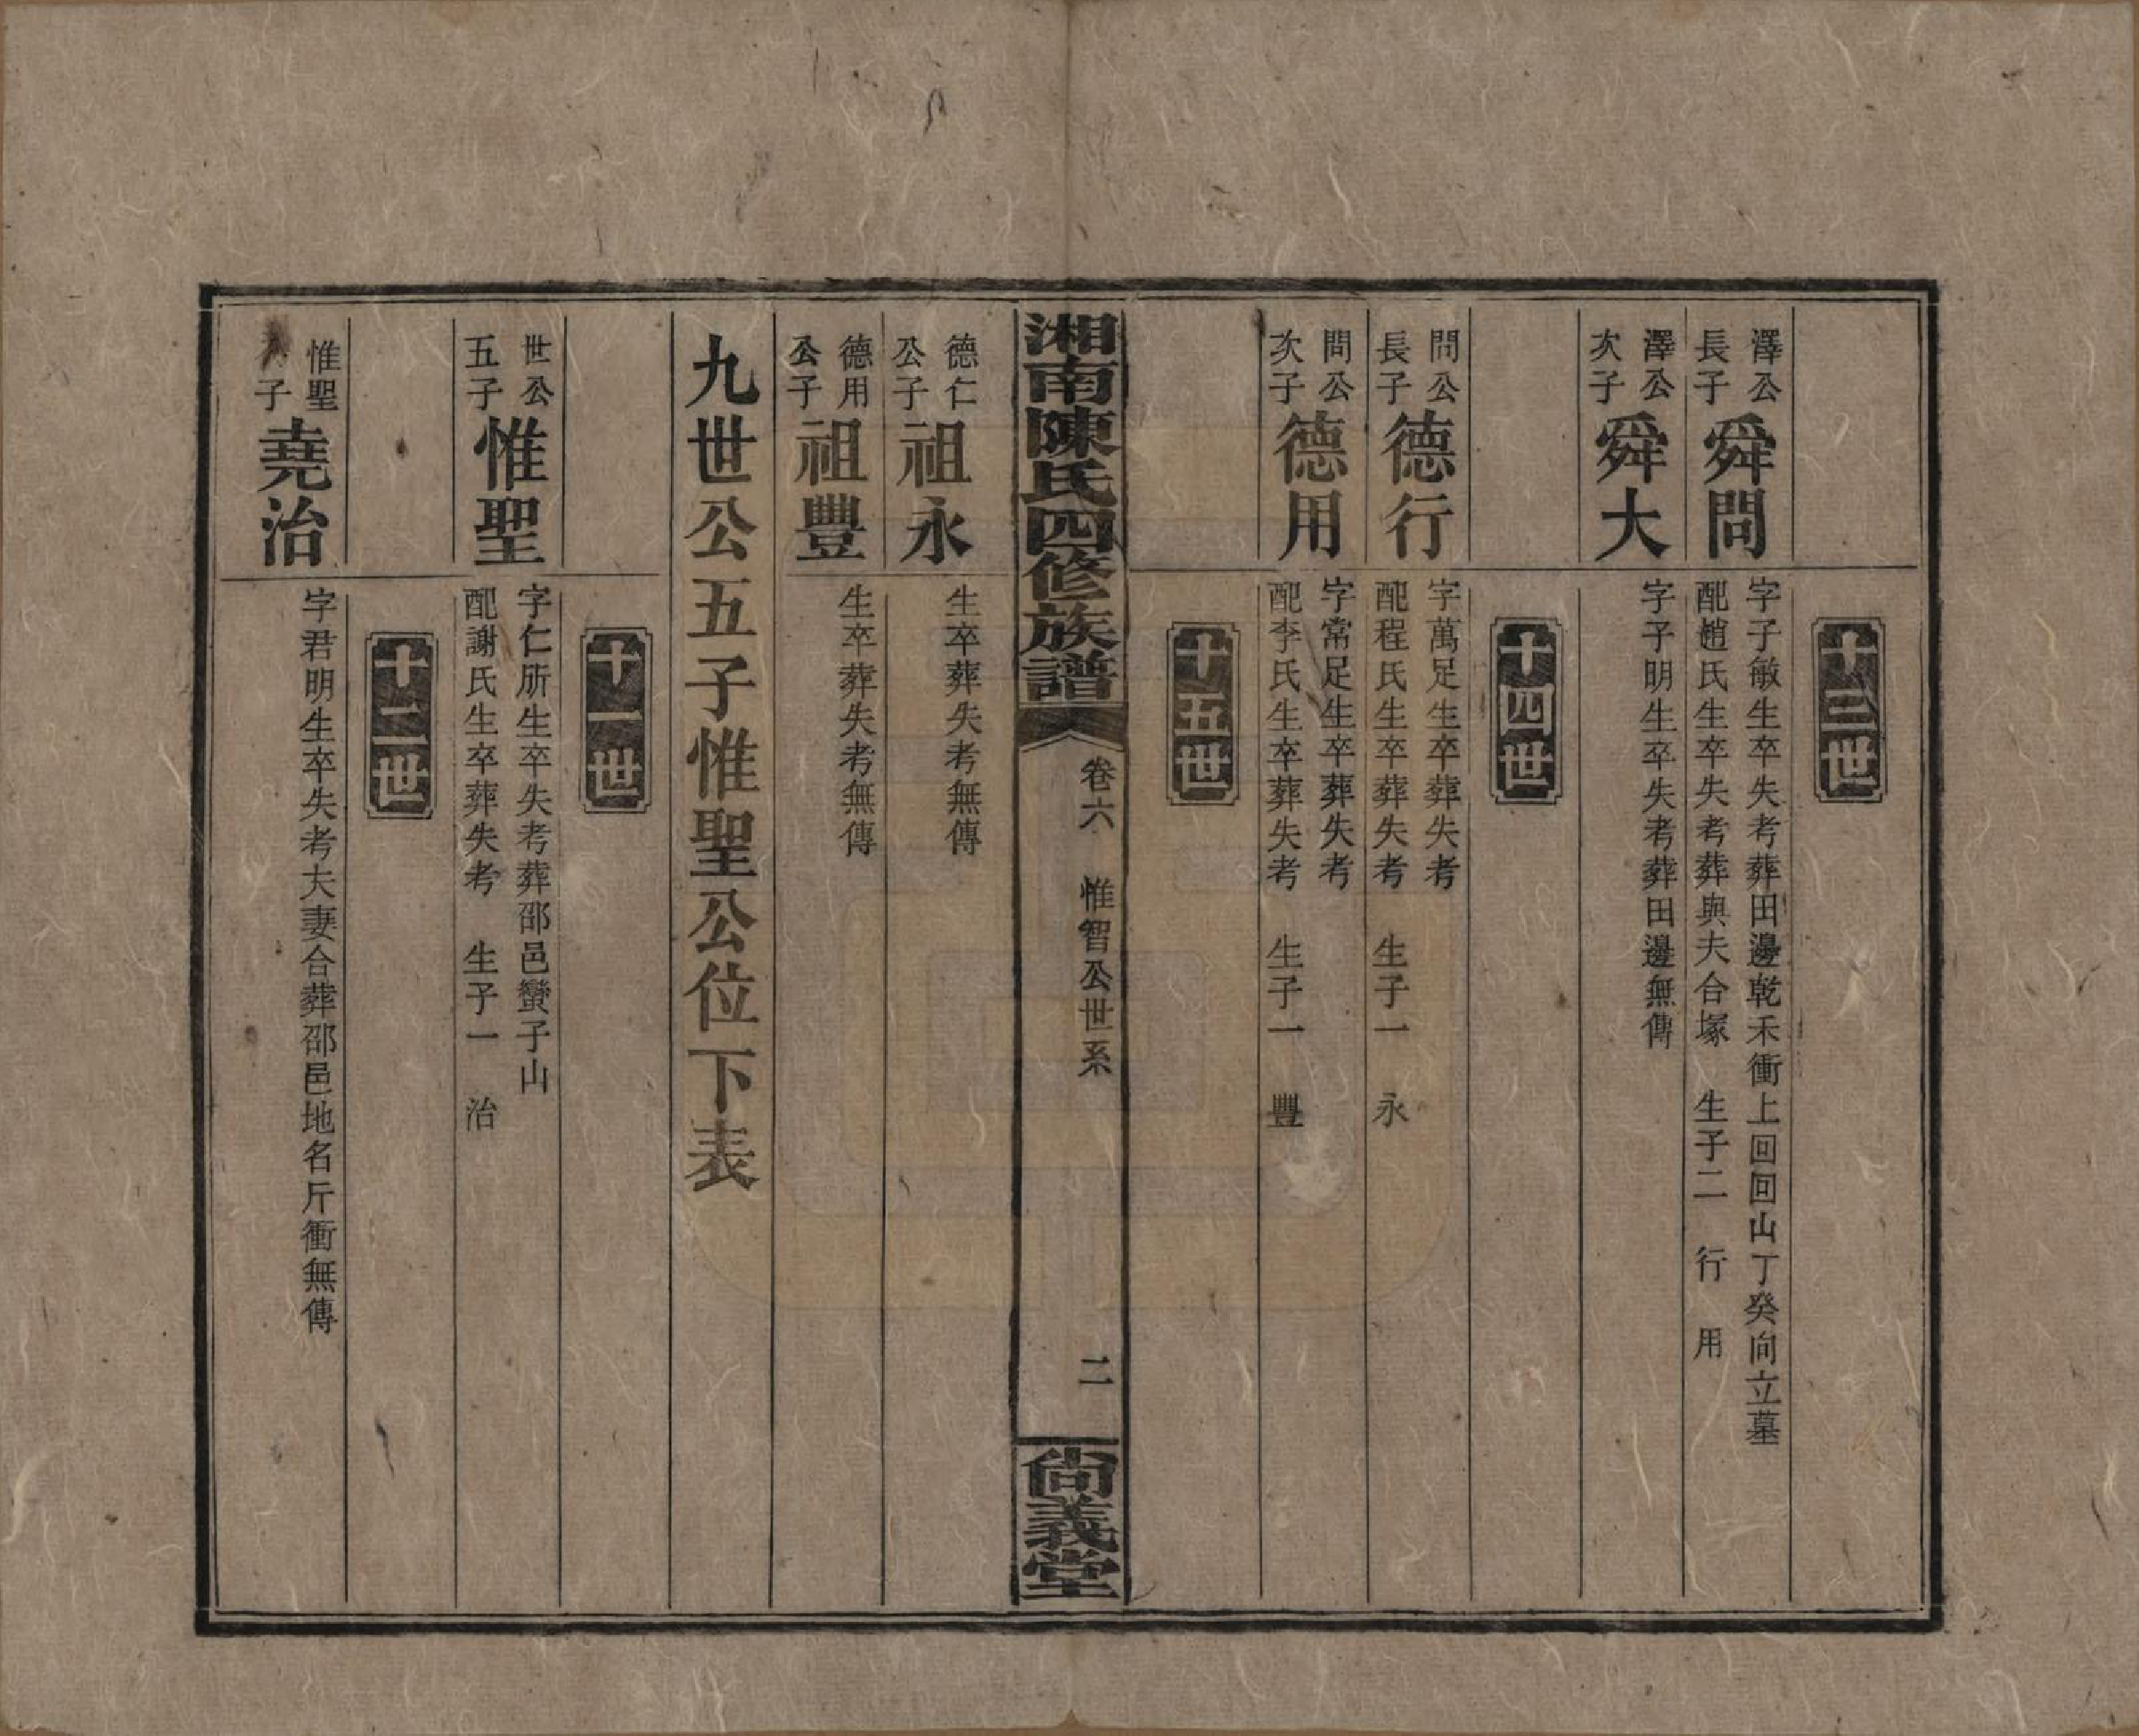 十三世
澤公長子
舜問
字子敏生卒失考葬田邊乾禾衝上回回山丁癸向立墓
配趙氏生卒失考葬與夫合塚 生子二 行 用
澤公次子
舜大
字子明生卒失考葬田邊無傳
十四世
問公長子
德行
字萬足生卒葬失考
配程氏生卒葬失考 生子一 永
問公次子
德用
字常足生卒葬失考
配李氏生卒葬失考 生子一 豐
十五世
湘南陳氏四修族譜
卷六 惟智公世系
二
尙義堂
德仁公子
祖永
生卒葬失考無傳
德用公子
祖豐
生卒葬失考無傳
九世公五子惟聖公位下表
十一世
世公五子
惟聖
字仁所生卒失考葬邵邑蠻子山
配謝氏生卒葬失考 生子一 治
十二世
惟聖子
堯治
字君明生卒失考夫妻合葬邵邑地名斤衝無傳